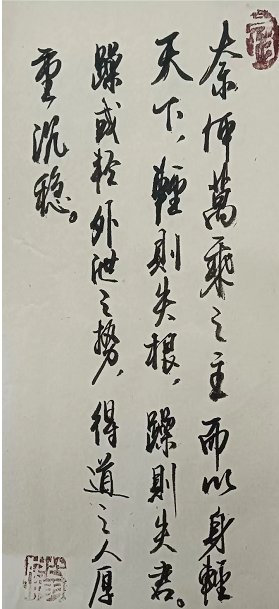 奈何萬乘之主而以身輕
天下，輕則失根，躁則失君。
躁或轻外泄之势，得道之人厚
重沉稳。